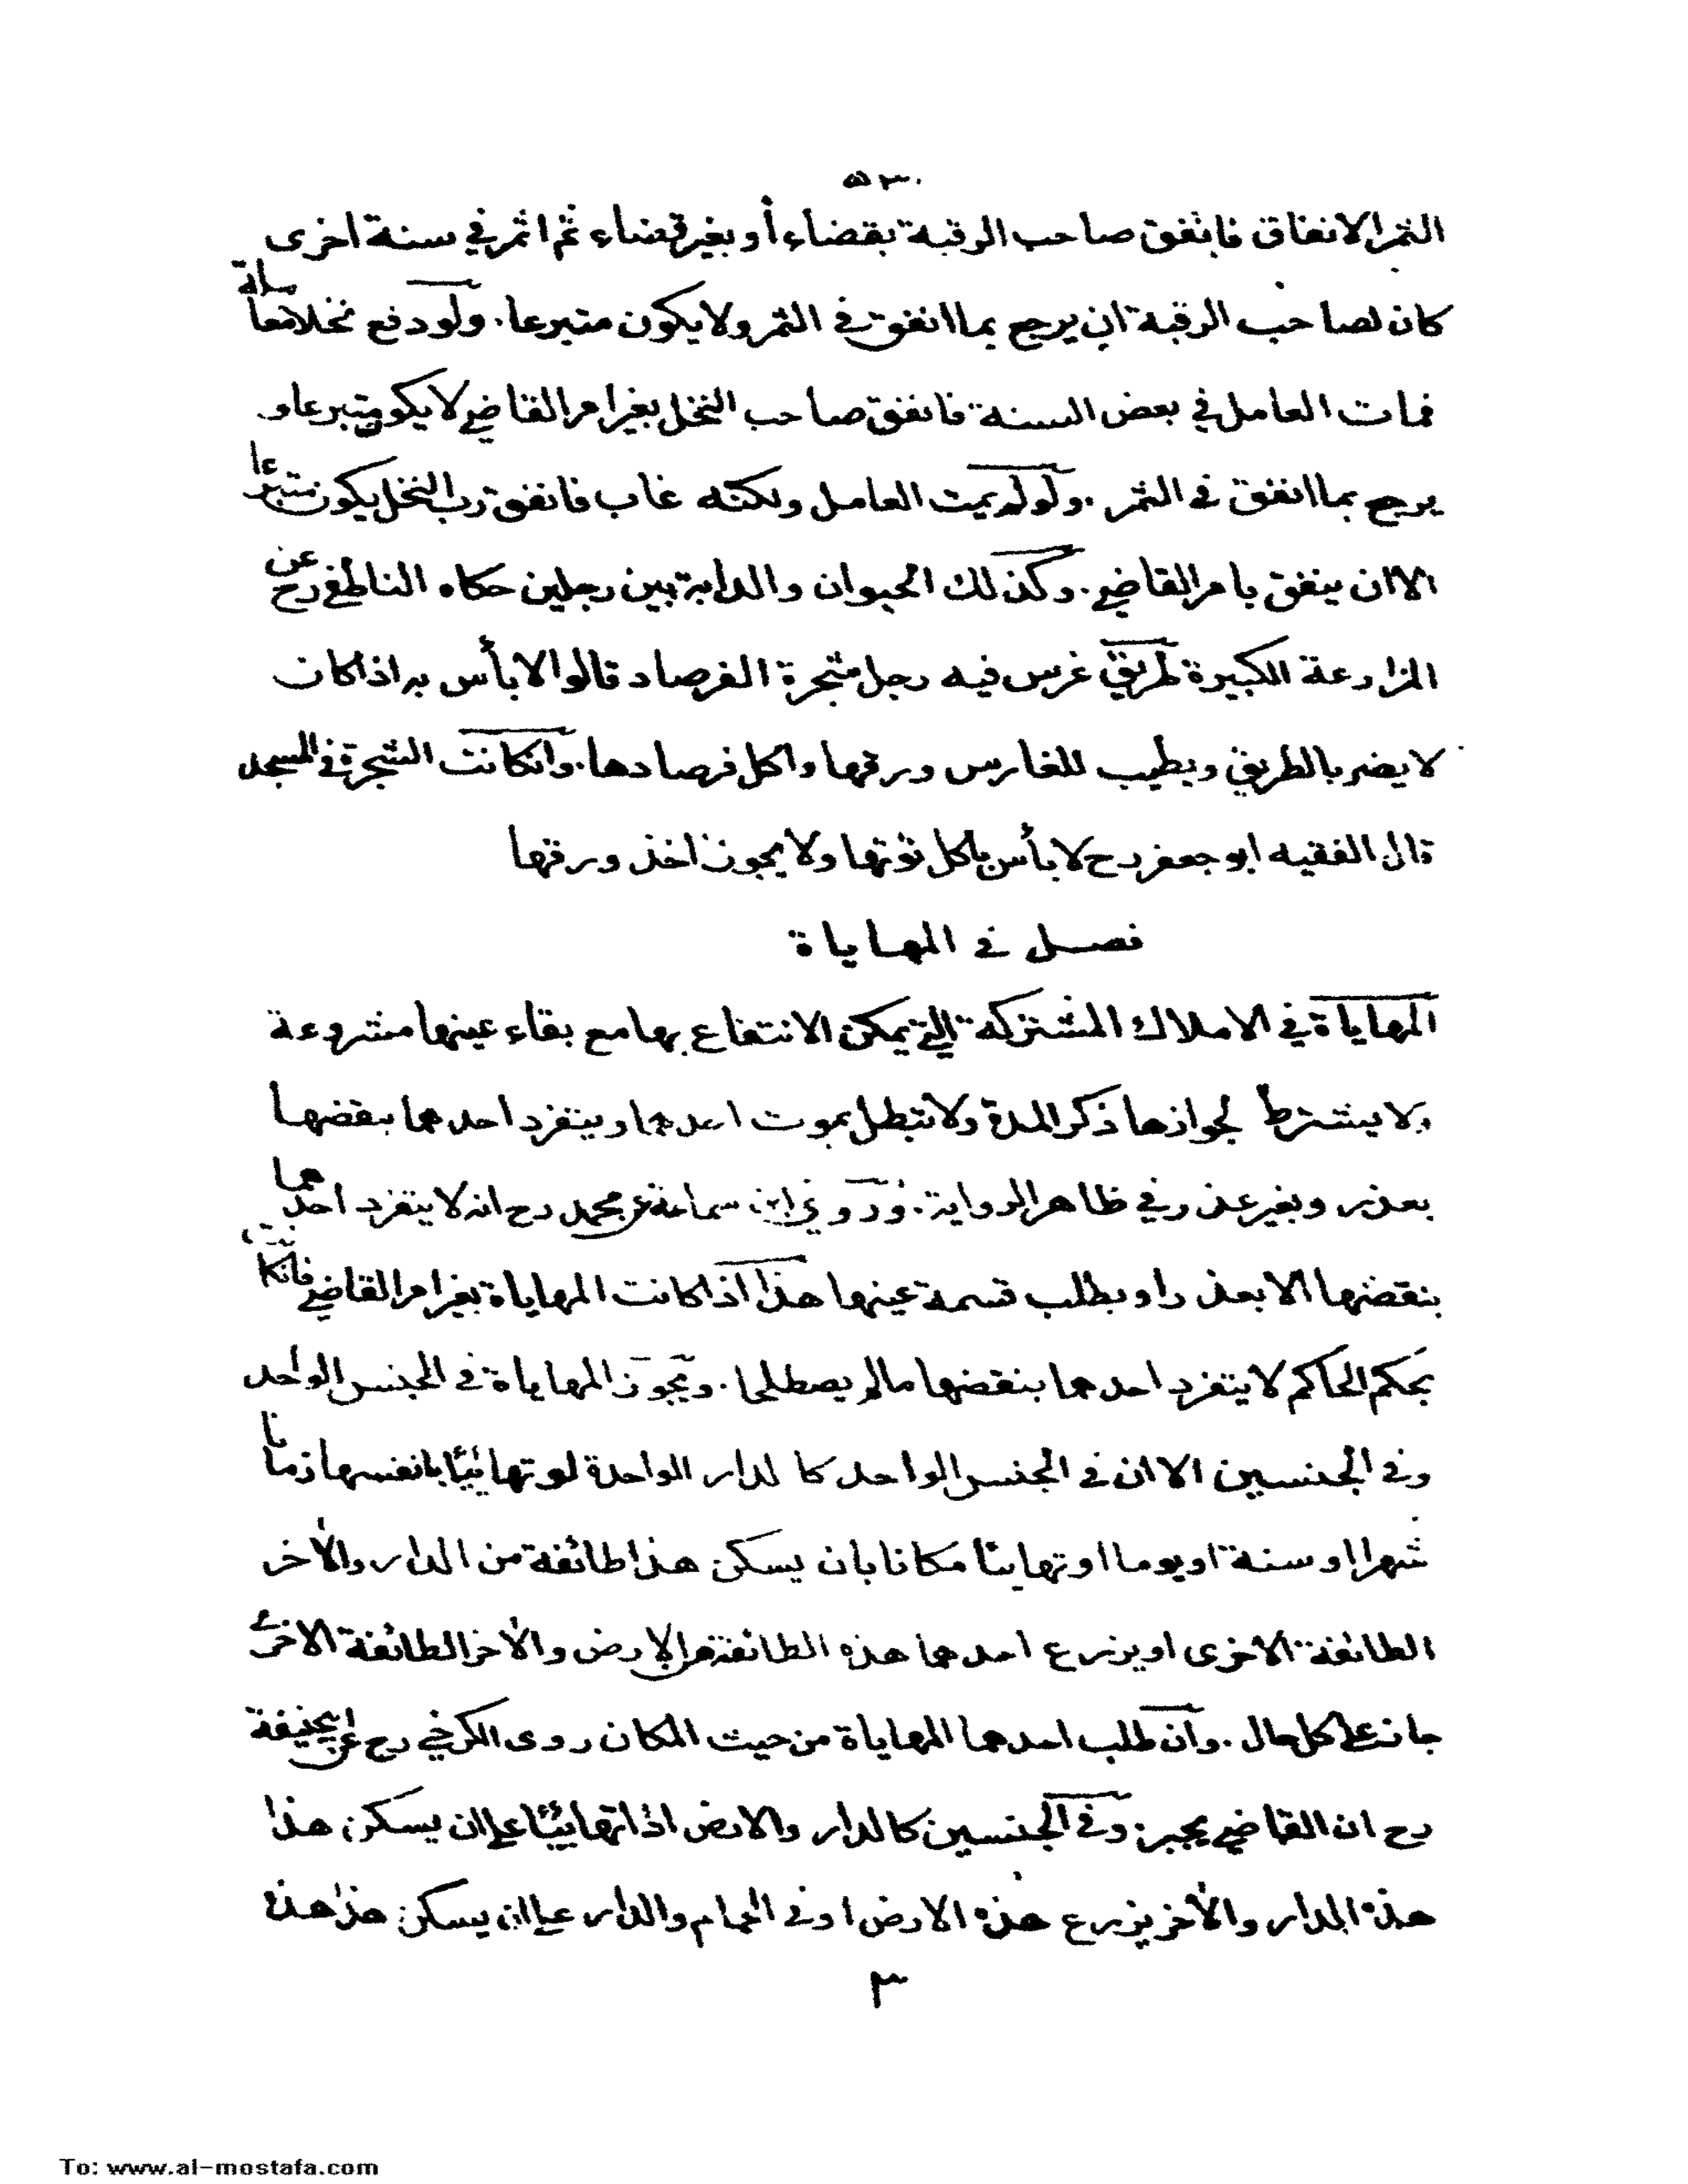 ٥٣٠
الثمر الانفاق فانفق صاحب الرقبة بقضاء أو بغير قضاء ثم اثمر في سنة اخرى
كان لصاحب الرقبة ان يرجع بما انفق في الثمر ولا يكون متبرعا . ولو دفع نخلا معاملة
فمات العامل في بعض السنة فانفق صاحب النخل بغير امر القاضي لا يكون متبرعا و
يرجع بما انفق في الثمر . ولو لم يمت العامل ولكنه غاب فانفق رب النخل يكون متبرعا
الا ان ينفق بامر القاضي . وكذلك الحيوان والدابة بين رجلين حكاه الناطفي رح عن
المزارعة الكبيرة طريق غرس فيه رجل شجرة الفرصاد قالوا لا بأس به اذا كان
لا يضر بالطريق ويطيب للغارس ورقها واكل فرصادها . وانكانت الشجرة في المسجد
قال الفقيه ابو جعفر رح لا بأس باكل توتها ولا يجوز اخذ ورقها
فصل في المهاياة
المهاياة في الاملاك المشتركة التي يمكن الانتفاع بها مع بقاء عينها مشروعة
ولا يشترط لجوازها ذكر المدة ولا تبطل بموت احدهما وينفرد احدهما بنقضها
بعذر وبغير عذر في ظاهر الرواية . وروى ابن سماعة عن محمد رح انه لا ينفرد احدهما
بنقضها الا بعذر او يطلب قسمة عينها هذا اذا كانت المهاياة بغير امر القاضي فانكانت
بحكم الحاكم لا ينفرد احدهما بنقضها مالم يصطلحا . ويجوز المهاياة في الجنس الواحد
وفي الجنسين الا ان في الجنس الواحد كا لدار الواحدة لو تهايئا بانفسهما زمانا
شهرا او سنة او يوما او تهايئا مكانا بان يسكن هذا طائفة من الدار والآخر
الطائفة الاخرى او يزرع احدهما هذه الطائفة من الارض والآخر الطائفة الاخرى
جاز على كل حال . وان طلب احدهما المهاياة من حيث المكان روى الكرخي رح عن ابيحنيفة
رح ان القاضي يجبر . وفي الجنسين كالدار والارض اذا تهايئا على ان يسكن هذا
هذه الدار والآخر يزرع هذه الارض او في الحمام والدار على ان يسكن هذا هذه
٣
To: www.al-mostafa.com